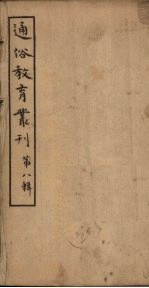 通俗教育叢刊第八輯